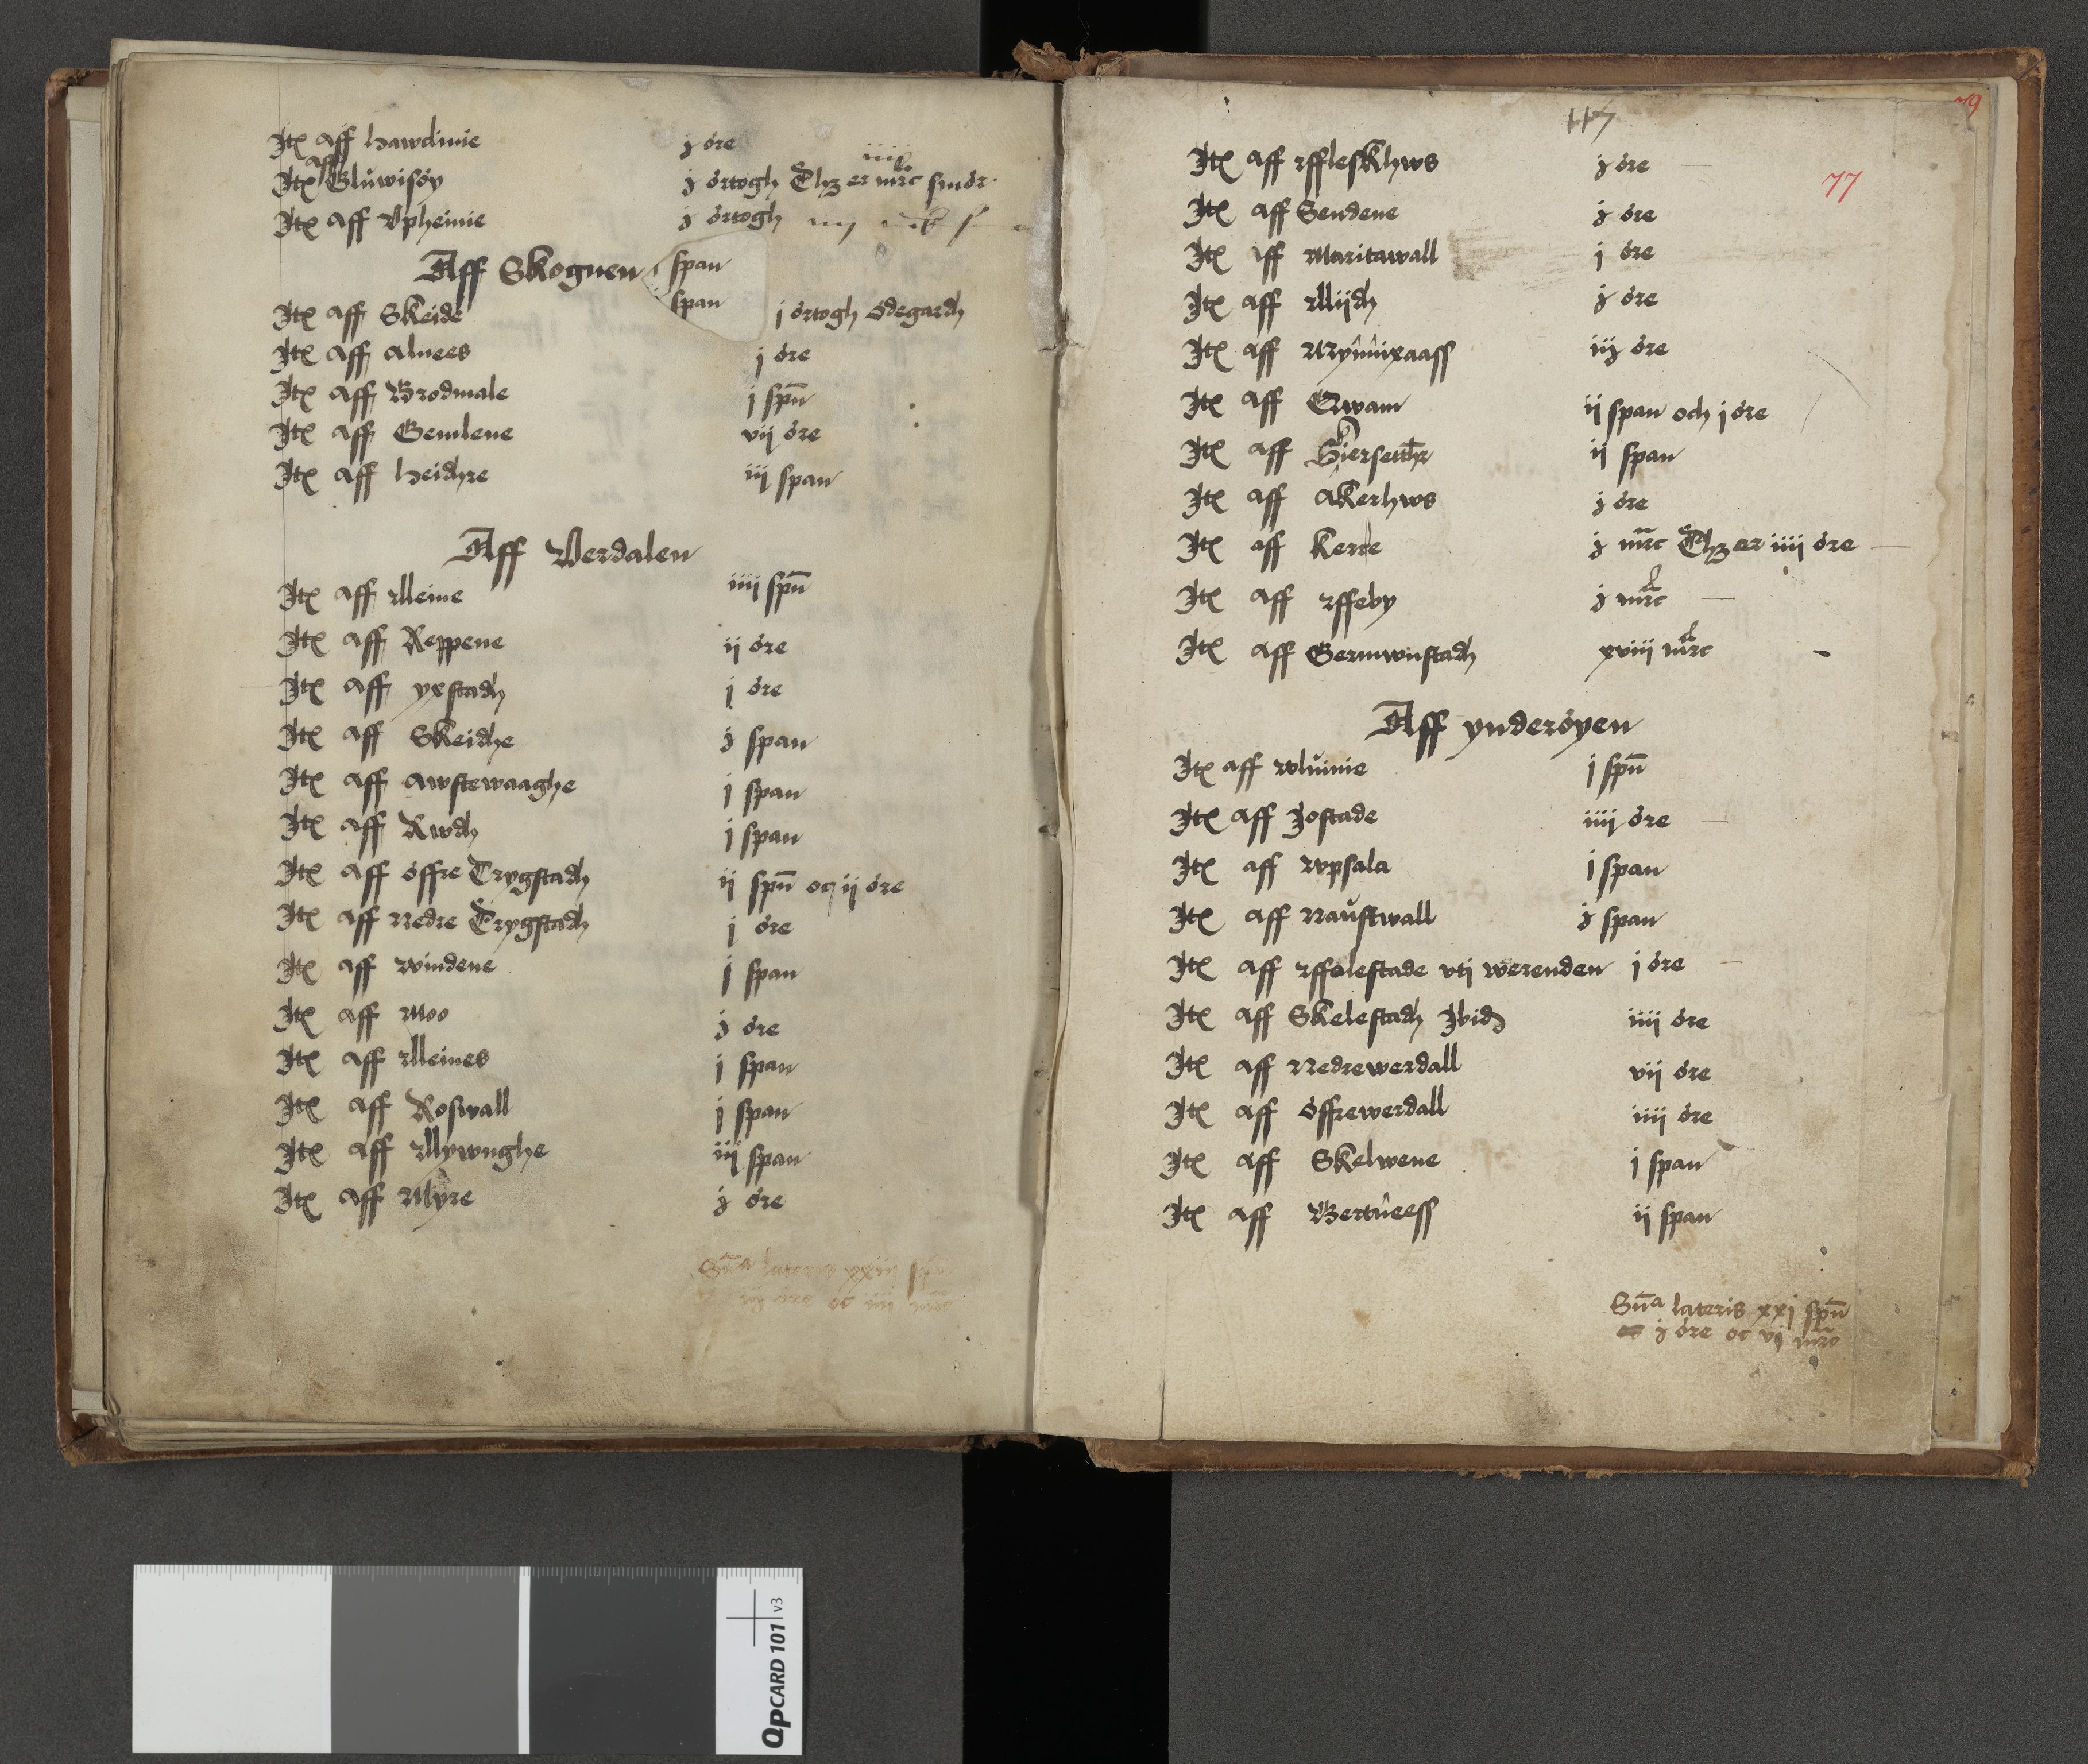 Itē aff hawdinie j óre
Itē aff Glúwisóy ɉ órtogh Thz er iiii mrc smór
Itē aff Vpheimie ɉ órtogh
Aff Skognen span
Itē aff Skeide span j órtogh ódegardh
Itē aff alnees j óre
Itē aff Brodmale j spn̄
Itē aff Gemlene vij óre
Itē aff heidhre iij span
Aff Verdalen
Itē aff lleine iiij spn̄
Itē aff Reppene ij óre
Itē aff yxstadh j óre
Itē aff Skeidhe ɉ span
Itē aff awstewaaghe j span
Itē aff Rwdh j span
Itē aff óffre Trygstadh ij spn̄ oc ij óre
Itē aff nedre Trygstadh j óre
Itē aff windene j span
Itē aff Moo ɉ óre
Itē aff lleines j span
Itē aff Roswall j span
Itē aff llywnghe iij span
Itē aff Myre ɉ óre
Sūa lateris xxiii spn̄
óre oc iiii mrc
117
79
77
Itē aff fflesklhws ɉ óre
Itē aff Sendene ɉ óre
Itē aff Maritawall j óre
Itē aff llijdh ɉ óre
Itē aff Myúnixaass iij óre
Itē aff Qwam ij span och j óre
Itē aff Biersetthr ij span
Itē aff akerhws ɉ óre
Itē aff kerre ɉ mrc Thz er iiij óre
Itē aff ffeby ɉ mrc
Itē aff Germwnstadh xviij mrc
Aff ynderóyen
Itē aff wluinie j spn̄
Itē aff Jostade iiij óre
Itē aff wpsala j span
Itē aff Naústwall ɉ span
Itē aff ffalestade vtj werenden j óre
Itē aff Skelestadh Jbid iiij óre
Itē aff Nedrewerdall vij óre
Itē aff óffrewerdall iiij óre
Itē aff Skelwene j span
Itē aff Bertneess ij span
Sūa lateris xxj spn̄
ɉ óre oc vj mrc
QPCARD 101 v3